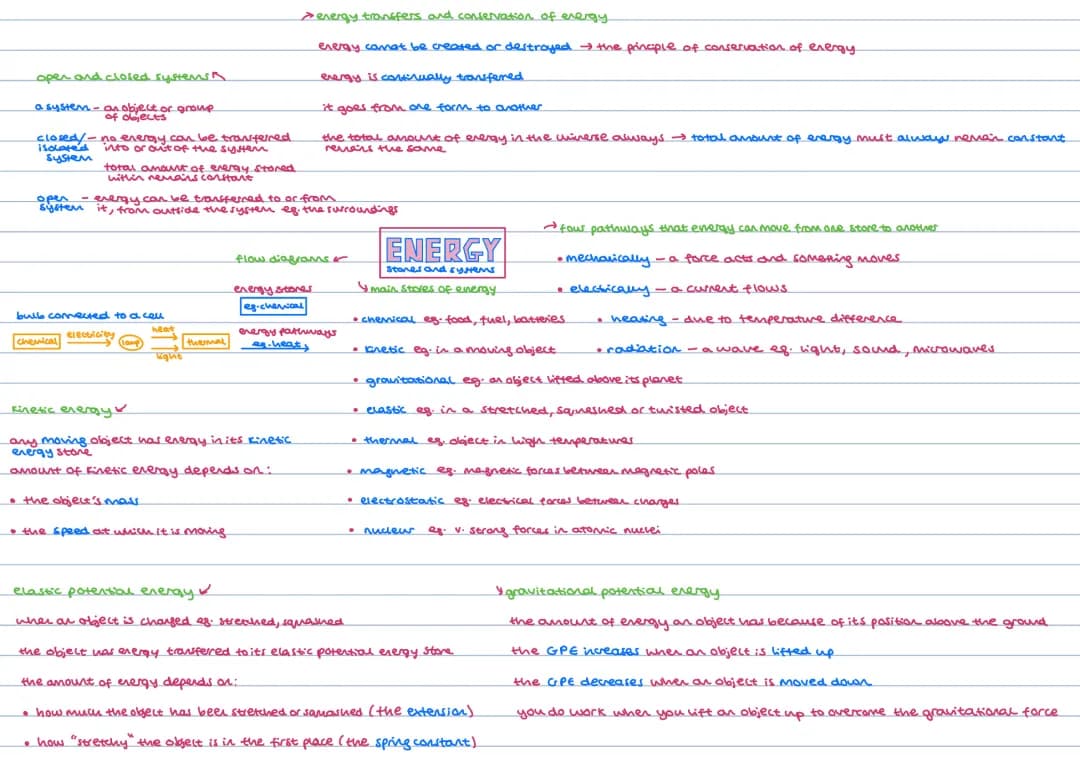 energy transfers and conservation of energy
energy cannot be created or destroyed → the principle of conservation of energy
energy is continually transferred
it goes from one form to another
the total amount of energy in the universe always → total amount of energy must always remain constant
remains the same
open and closed systems
a system - an object or group
of objects
closed/ - no energy can be transferred
isolated into or out of the system
system
total amount of energy stored
within remains constant
open - energy can be transferred to or from
system it, from outside the system eg. the surroundings
ENERGY
stores and systems
four pathways that energy can move from one store to another
• mechanically - a force acts and something moves
• electrically - a current flows
• heating - due to temperature difference
• radiation - a wave eg. light, sound, microwaves
flow diagrams
energy stores
eg. chemical
energy pathways
eg. heat
bulb connected to a cell
chemical electricity lamp heat light thermal
main stores of energy
• chemical eg. food, fuel, batteries
• kinetic eg. in a moving object
• gravitational eg. an object lifted above its planet
• elastic eg. in a stretched, squashed or twisted object
• thermal eg. object in high temperatures
• magnetic eg. magnetic forces between magnetic poles
• electrostatic eg. electrical forces between charges
• nuclear eg. v. strong forces in atomic nuclei
kinetic energy
any moving object has energy in its kinetic
energy store
amount of kinetic energy depends on:
• the object's mass
• the speed at which it is moving
elastic potential energy
when an object is changed eg. stretched, squashed
the object has energy transferred to its elastic potential energy store
the amount of energy depends on:
• how much the object has been stretched or squashed (the extension)
• how "stretchy" the object is in the first place (the spring constant)
gravitational potential energy
the amount of energy an object has because of its position above the ground
the GPE increases when an object is lifted up
the GPE decreases when an object is moved down
you do work when you lift an object up to overcome the gravitational force